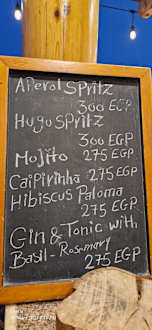 Aperol Spritz
300 EGP
Hugo Spritz
300 EGP
Mojito 275 EGP
Caipirinha 275 EGP
Hibiscus Paloma
275 EGP
Gin & Tonic with
Basil - Rosemary
275 EGP